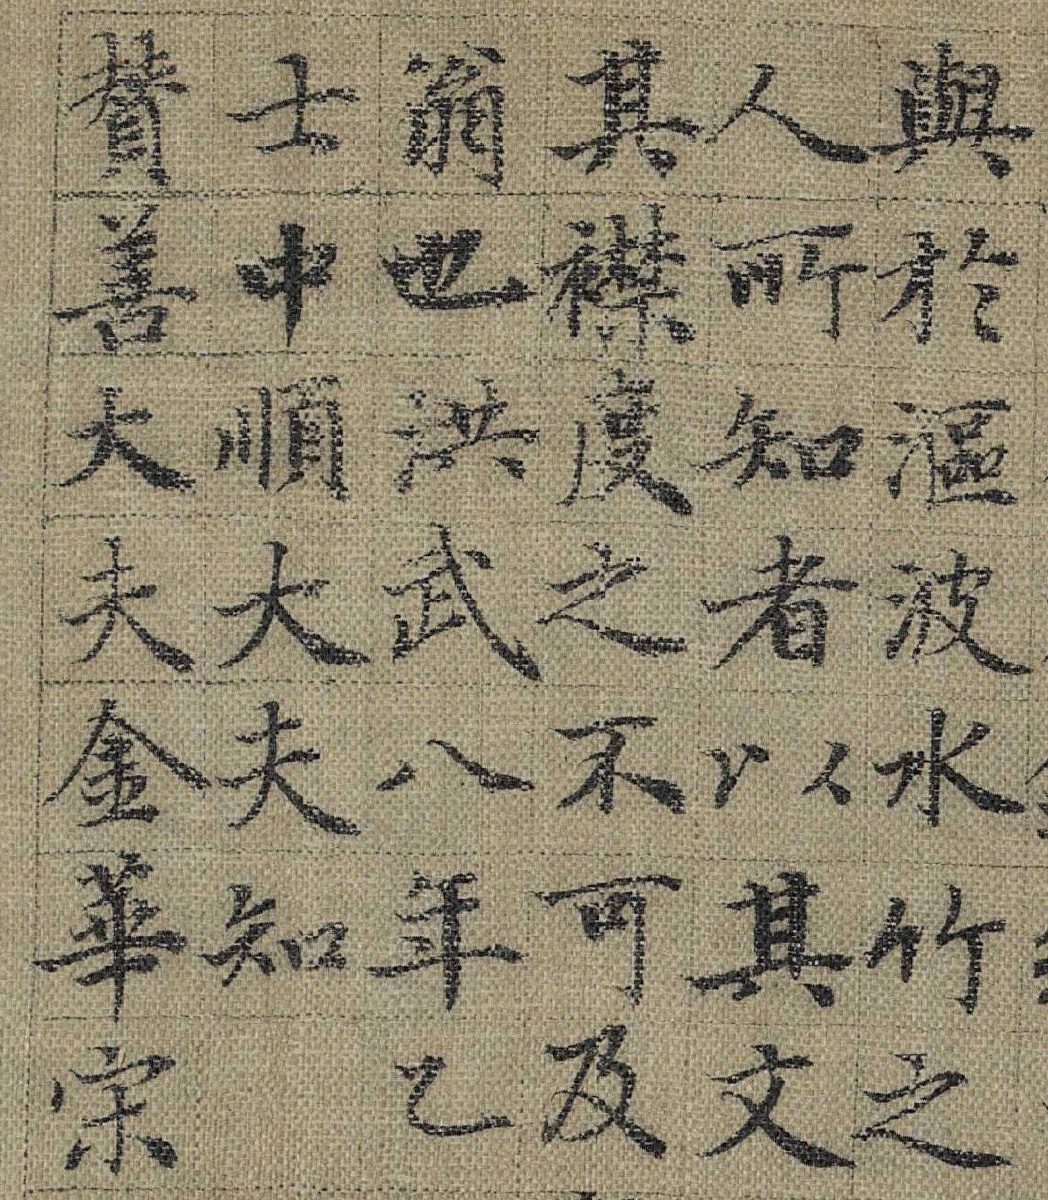 與於漚波水竹之
人所知者以其文
其襟度之不可及
翁也洪武八年乙
士中順大夫知
贊善大夫金華宋